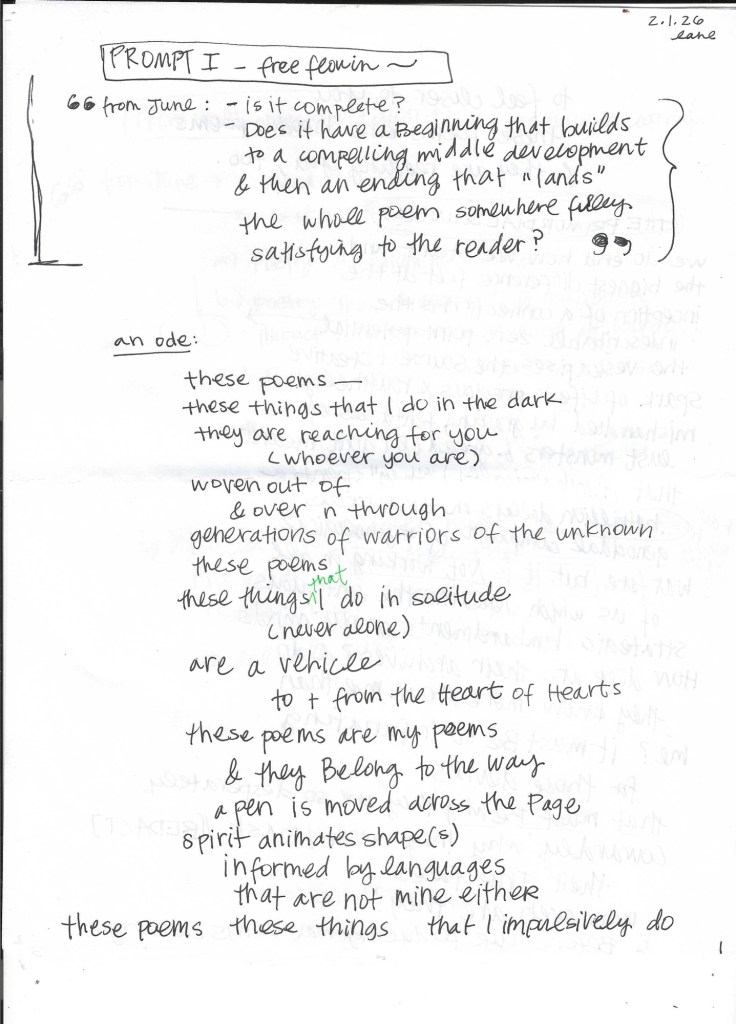 2.1.26
lane
PROMPT I - free flowin ~
“ from June: - is it complete?
Does it have a Beginning that builds
to a compelling middle development
& then an ending that "lands"
the whole poem somewhere fully
satisfying to the reader? ”
an ode:
these poems —
these things that I do in the dark
they are reaching for you
(whoever you are)
woven out of
& over n through
generations of warriors of the unknown
these poems
these things that I do in solitude
(never alone)
are a vehicle
to + from the Heart of Hearts
these poems are my poems
& they Belong to the way
a pen is moved across the Page
spirit animates shape(s)
informed by languages
that are not mine either
these poems these things that I impulsively do
1